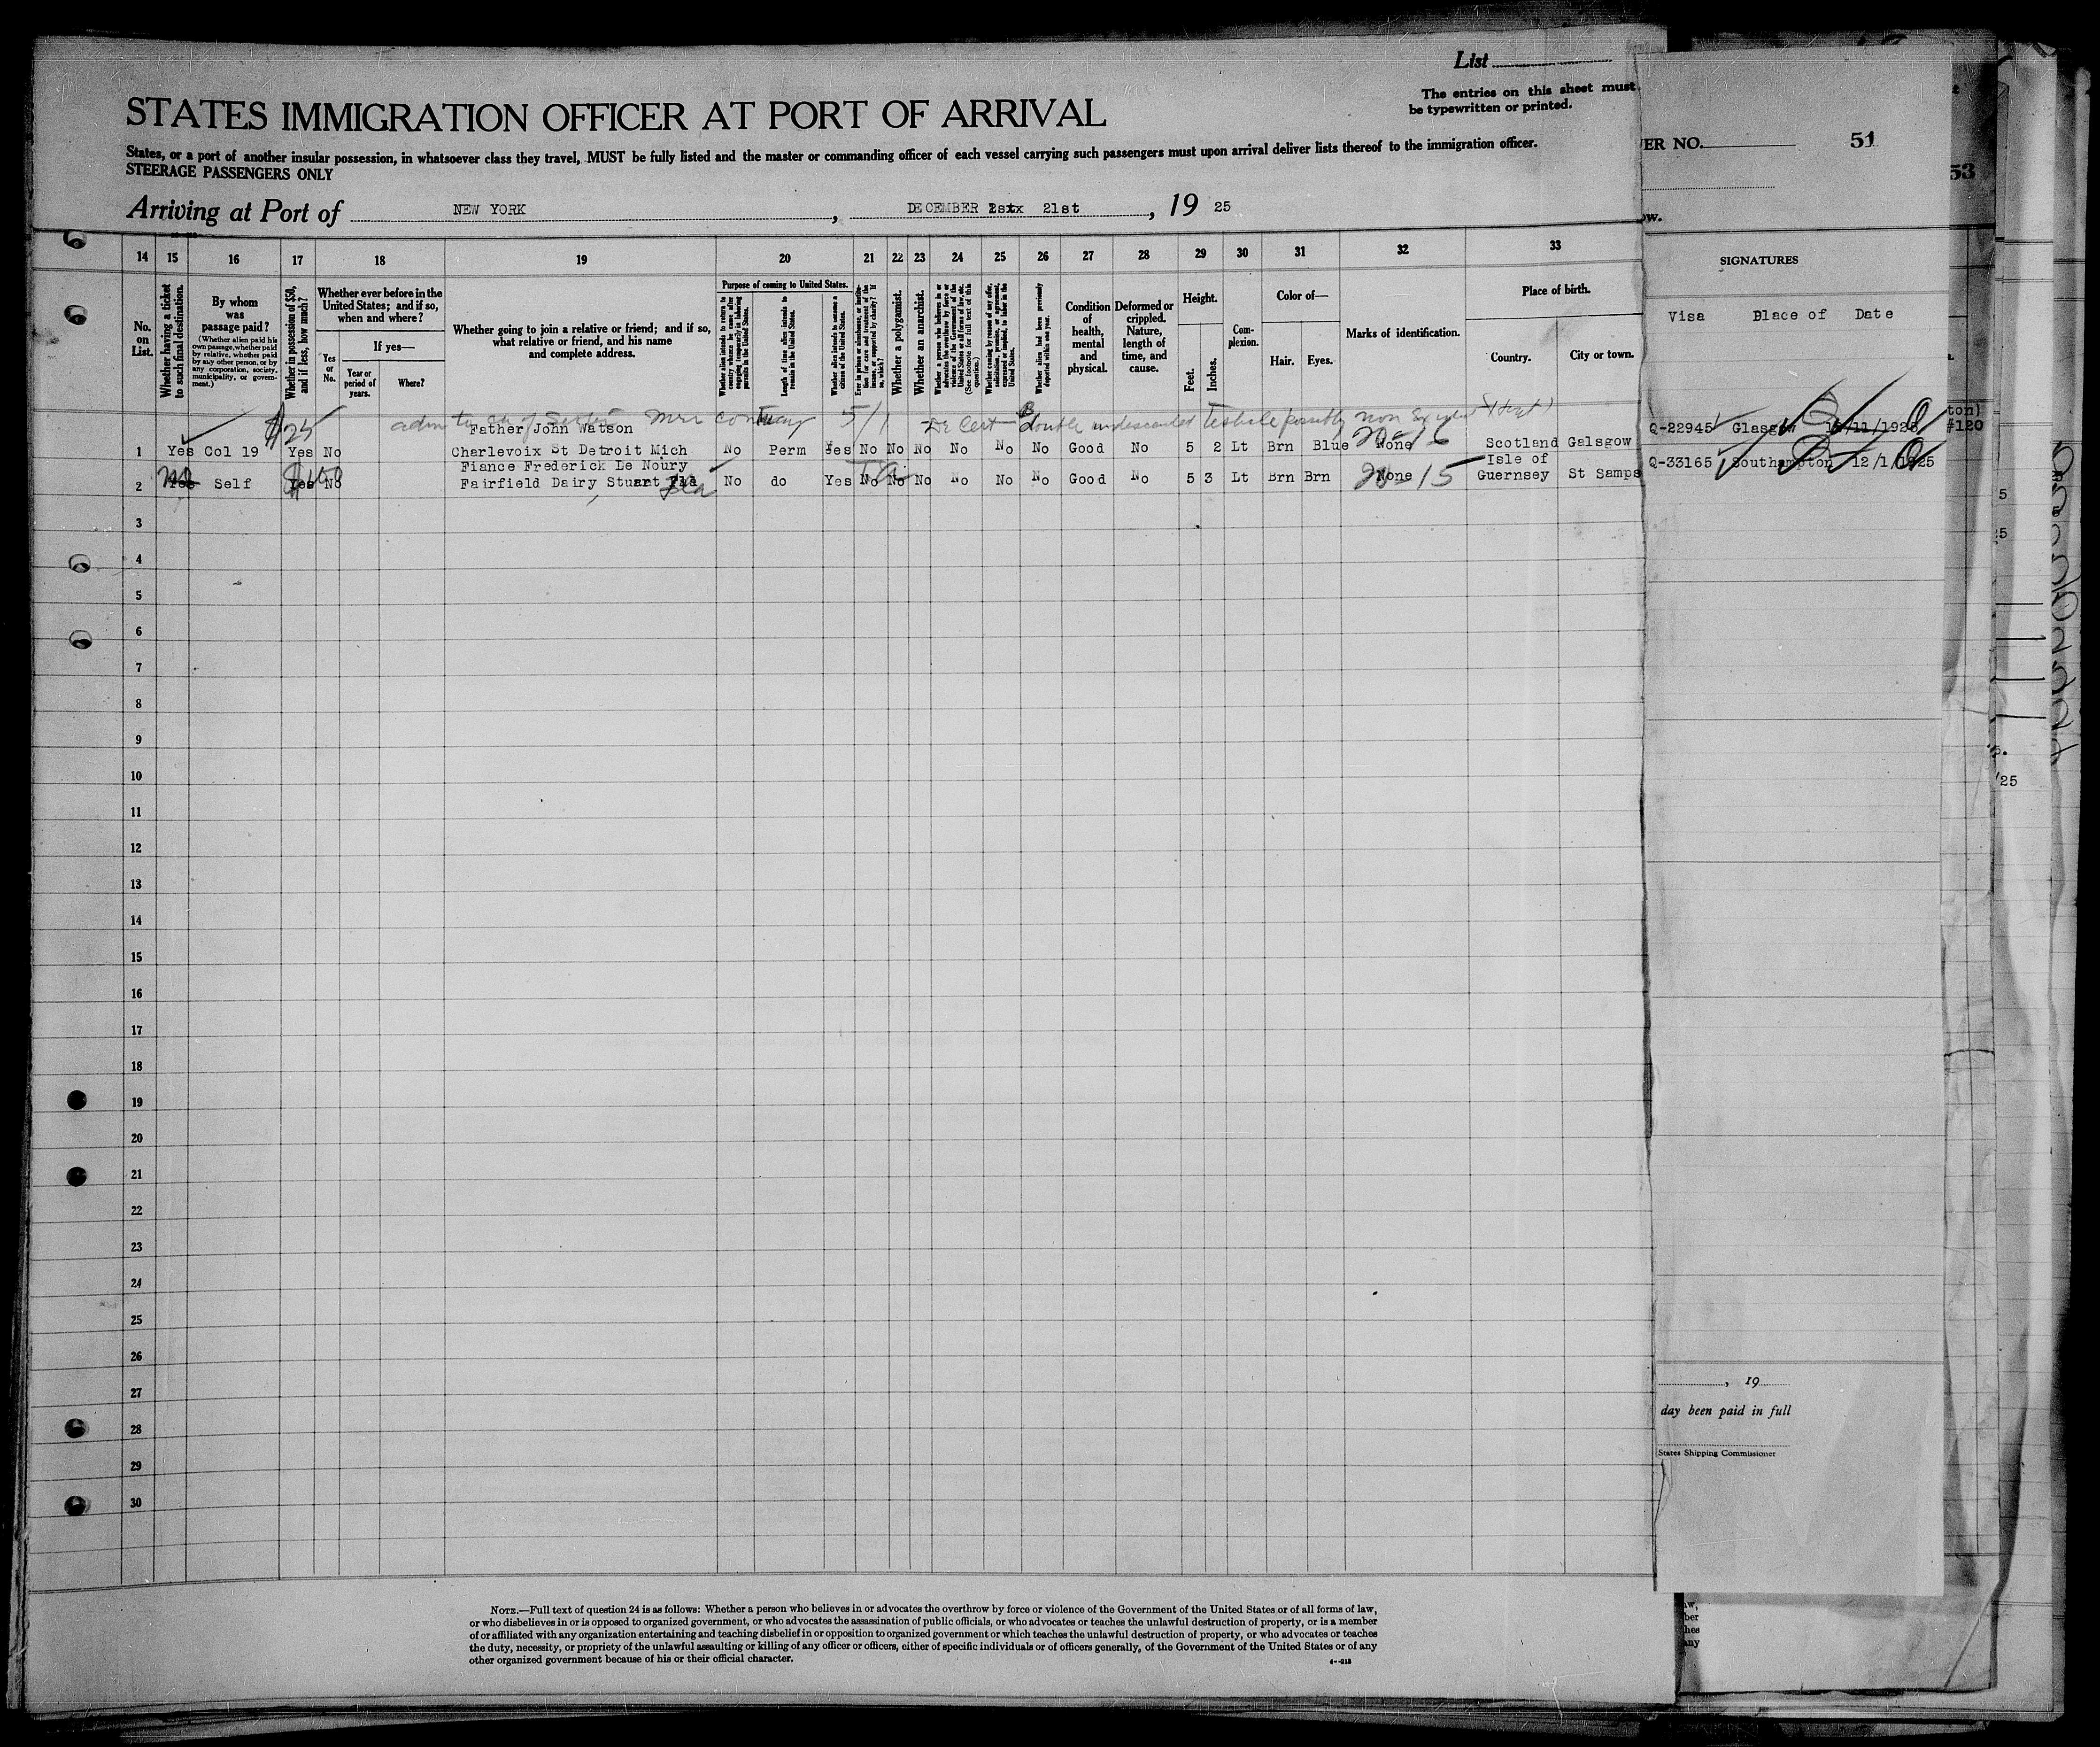 List
The entries on this sheet must
be typewritten or printed.
STATES IMMIGRATION OFFICER AT PORT OF ARRIVAL
States, or a port of another insular possession, in whatsoever class they travel, MUST be fully listed and the master or commanding officer of each vessel carrying such passengers must upon arrival deliver lists thereof to the immigration officer.
STEERAGE PASSENGERS ONLY
Arriving at Port of NEW YORK, DECEMBER 21st, 19 25
14 15 16 17 18 19 20 21 22 23 24 25 26 27 28 29 30 31 32 33
No. on List.
Whether having a ticket to such final destination.
By whom was passage paid?
(Whether alien paid his own passage, whether paid by relative, whether paid by any other person, or by any corporation, society, municipality, or government.)
Whether in possession of $50, and if less, how much?
Whether ever before in the United States; and if so, when and where?
Yes or No.
If yes—
Year or period of years.
Where?
Whether going to join a relative or friend; and if so, what relative or friend, and his name and complete address.
Purpose of coming to United States.
Whether alien intends to return to country whence he came after engaging temporarily in laboring pursuits in the United States.
Length of time alien intends to remain in the United States.
Whether alien intends to become a citizen of the United States.
Whether a polygamist.
Whether an anarchist.
Whether alien had been previously deported within one year.
Condition of health, mental and physical.
Deformed or crippled. Nature, length of time, and cause.
Height.
Feet.
Inches.
Complexion.
Color of—
Hair.
Eyes.
Marks of identification.
Place of birth.
Country.
City or town.
$25
Father John Watson
1 Yes Col 19 Yes No Charlevoix St Detroit Mich No Perm Yes No No No No No No Good No 5 2 Lt Brn Blue None Scotland Galsgow
Fiance Frederick De Noury
Isle of
2 Yes Self Yes No Fairfield Dairy Stuart Fla No do Yes No No No No No No Good No 5 3 Lt Brn Brn None Guernsey St Samps
3
4
5
6
7
8
9
10
11
12
13
14
15
16
17
18
19
20
21
22
23
24
25
26
27
28
29
30
NOTE.—Full text of question 24 is as follows: Whether a person who believes in or advocates the overthrow by force or violence of the Government of the United States or of all forms of law,
or who disbelieves in or is opposed to organized government, or who advocates the assassination of public officials, or who advocates or teaches the unlawful destruction of property, or is a member
of or affiliated with any organization entertaining and teaching disbelief in or opposition to organized government or which teaches the unlawful destruction of property, or who advocates or teaches
the duty, necessity, or propriety of the unlawful assaulting or killing of any officer or officers, either of specific individuals or of officers generally, of the Government of the United States or of any
other organized government because of his or their official character.
ER NO. 51
53
ow.
SIGNATURES
Visa Blace of Date
Q-22945 Glasgow
ton)
#120
Q-33165 Southampton 12/1/1925
5
/25
, 19
day been paid in full
States Shipping Commissioner